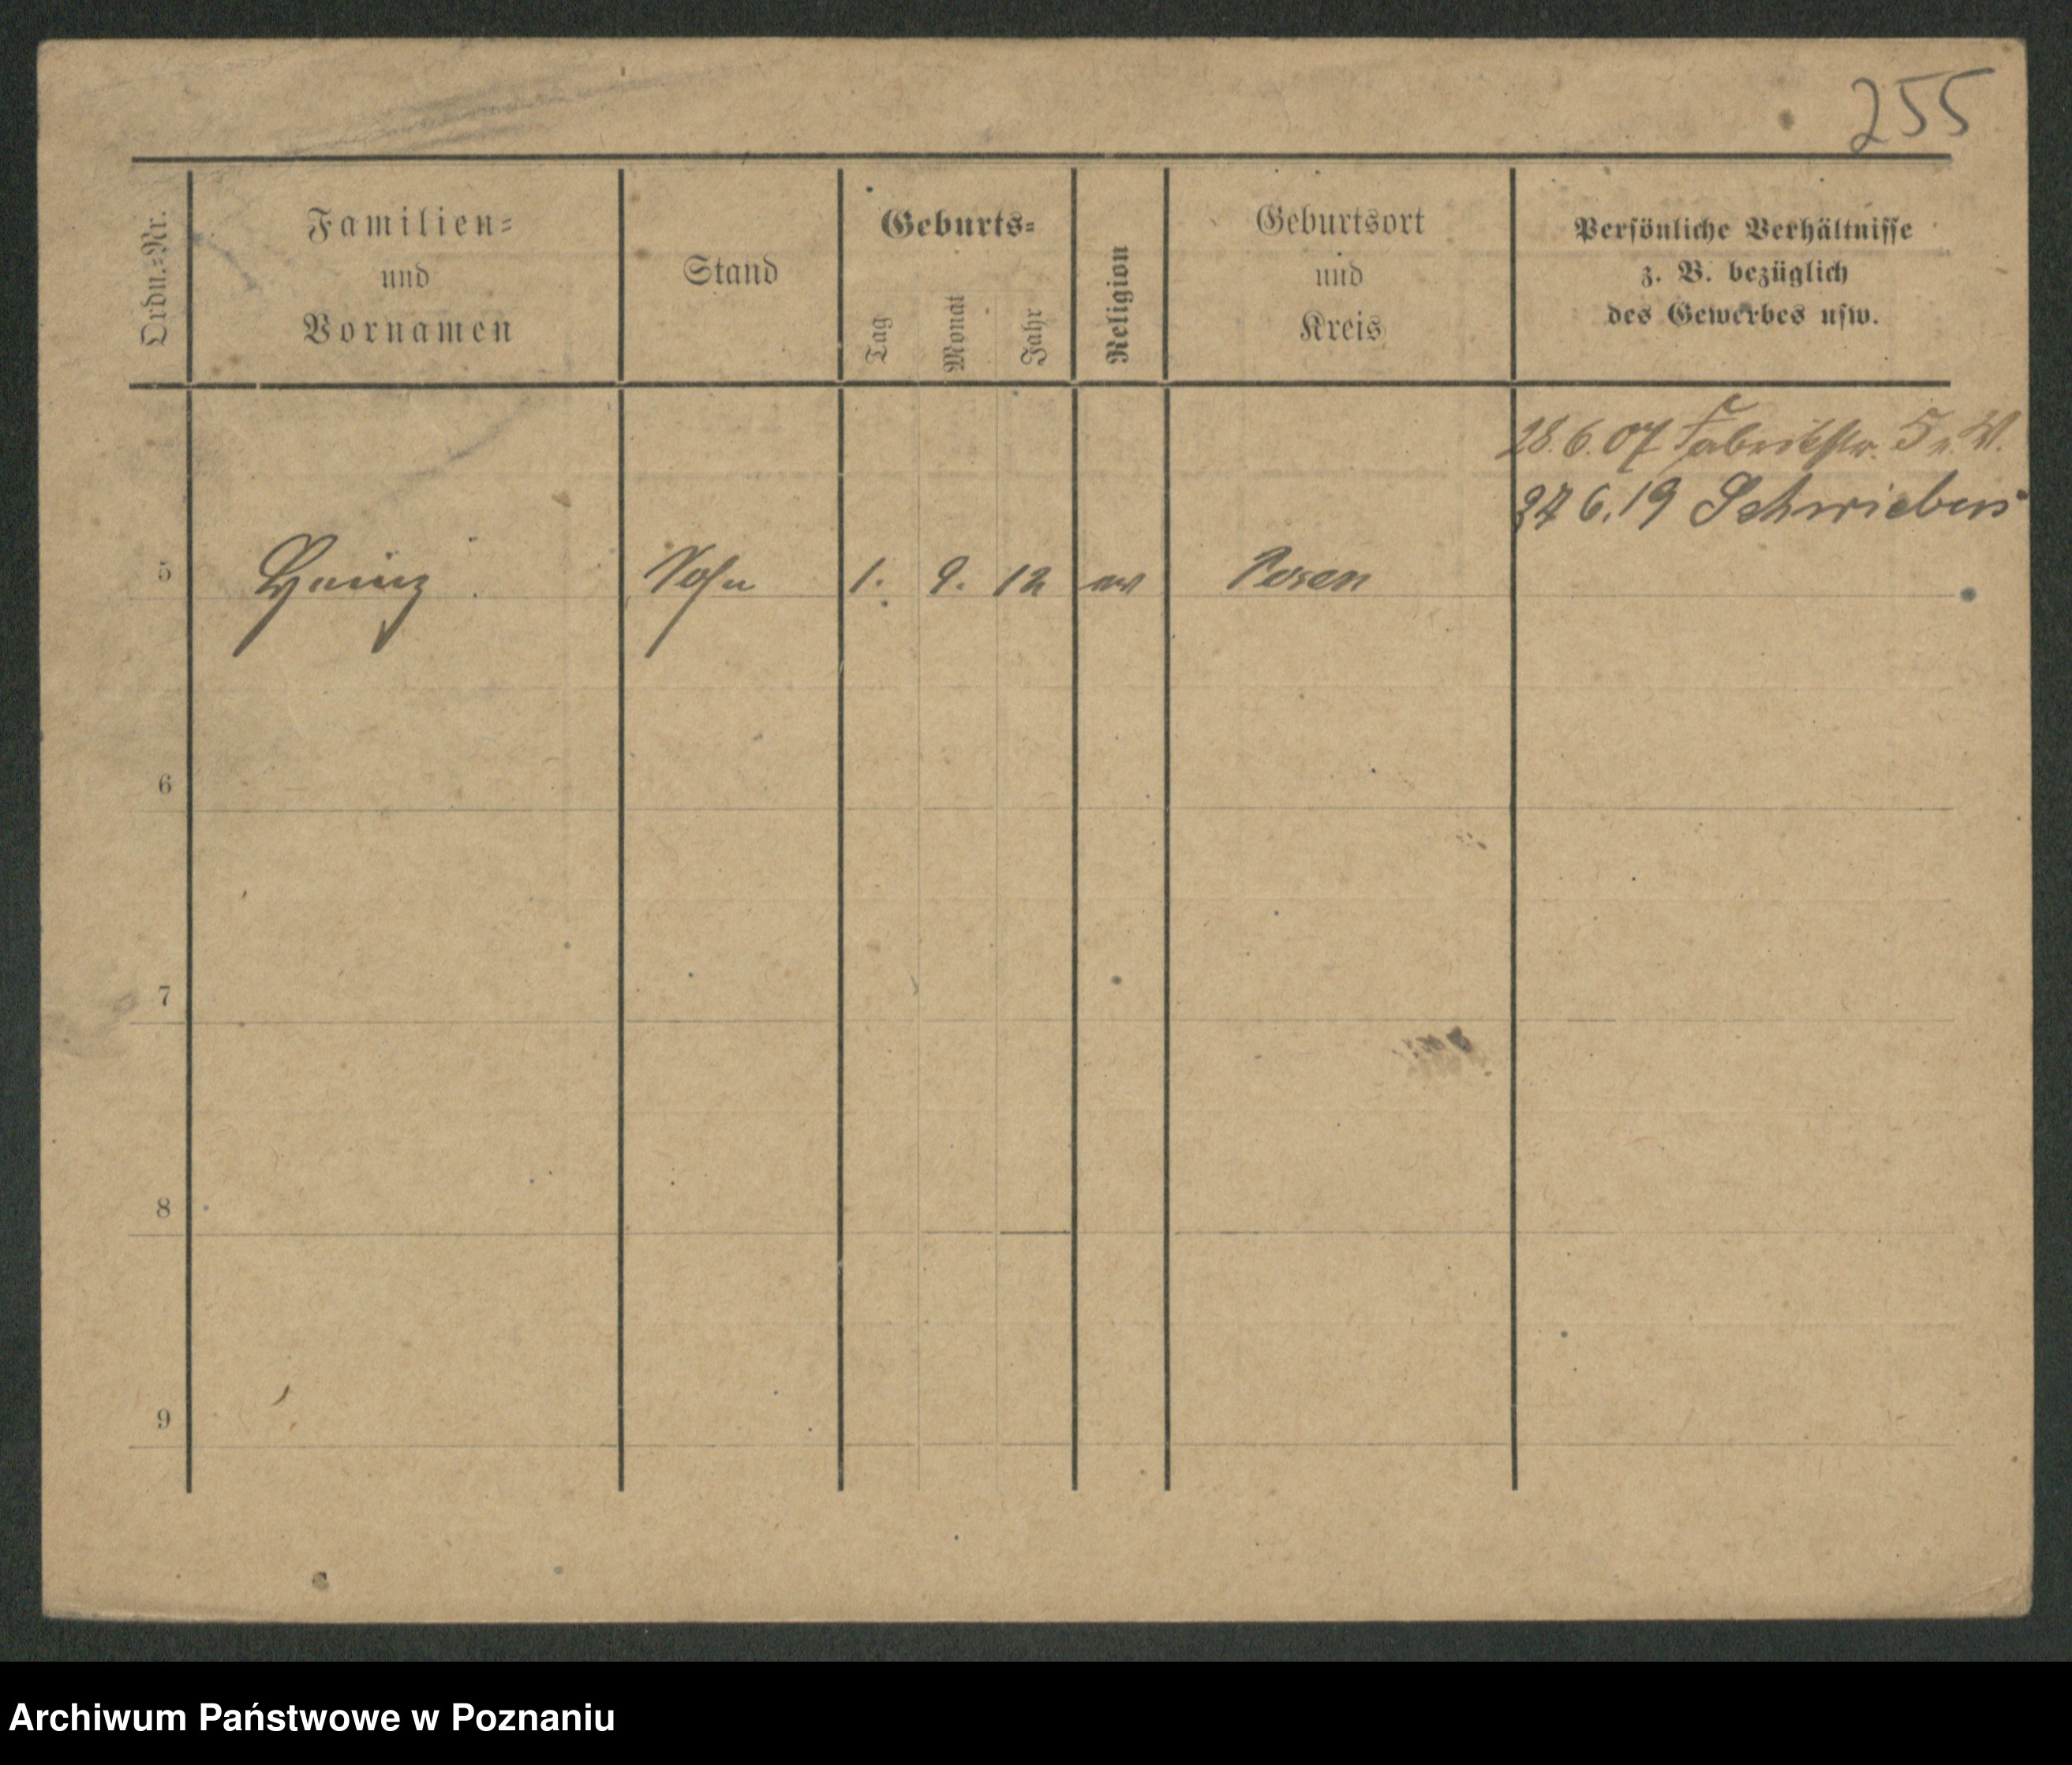 255
Ordn.-Nr.
Familien-
und
Vornamen
Stand
Geburts-
Tag
Monat
Jahr
Religion
Geburtsort
und
Kreis
Persönliche Verhältnisse
z. B. bezüglich
des Gewerbes usw.
28.6.07 Fabrikstr. 5
6.19 Schwiebus
5 Heinz Sohn 1. 9. 12 ev Posen
6
7
8
9
Archiwum Państwowe w Poznaniu